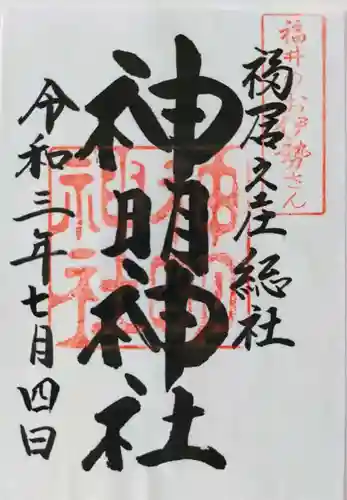 福井のお伊勢さん
福居之庄総社
神明神社
神明神社
令和三年七月四日